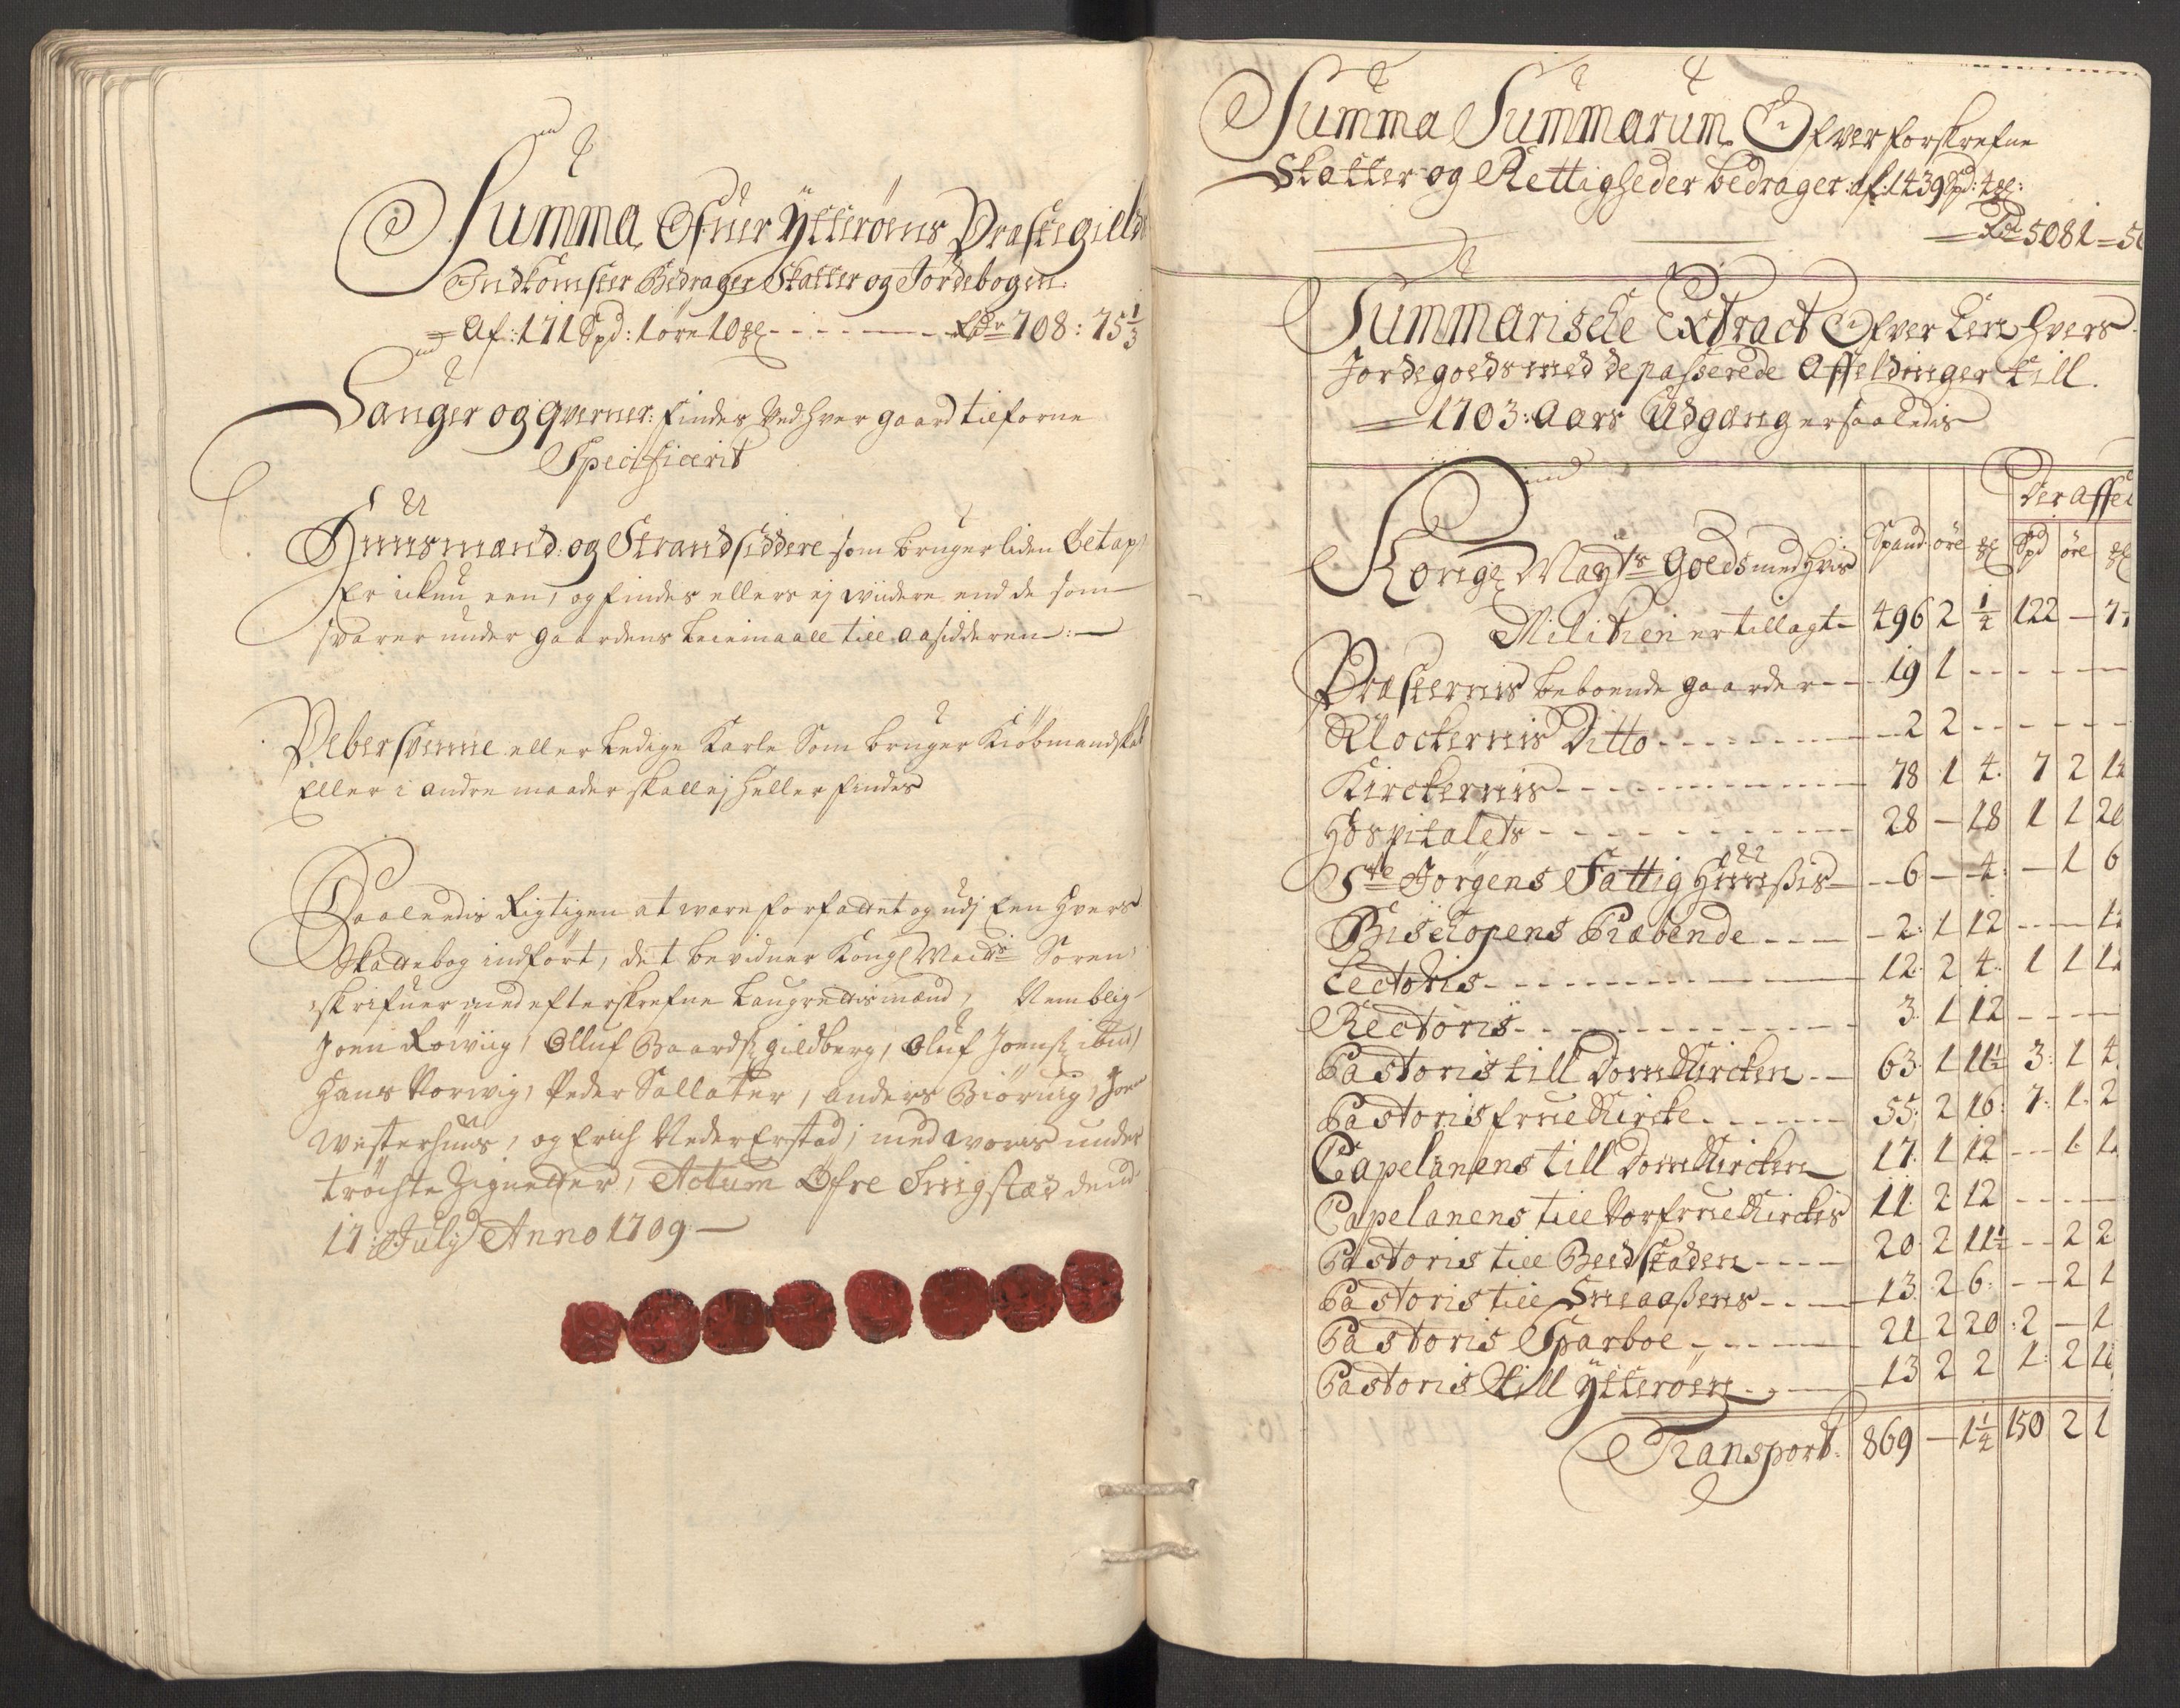 Summa Ofver Ÿtterøens Præstegilds
Indkomster Bedrager Skatter og Jordebogen
Af: 171 Spd: 1 øre 10 gl - - - Rdr 708: 75 1/3
Sauger og qverner: findes ved hver gaard tilforne
Specificerit
Huusmænd og Strandsiddere som bruger liden
Er ickun een, og findes ellers ej widere end de som
svarer under gaardens Leiemaall till aasidderen: —
Pebersvenne eller Ledige Karle Som bruger Kiøbmandskab
Eller i andre maader skall ej heller findes
Saaleedis Rigtigen at være forfattet og udj Een hvers
Skattebog indført, det bevidner Kongl May:ts Soren-
skrifuer med efterskrefne Laugrettismænd, Nemblig
Joen Røwiig, Olluf Baards: gildberg, Oluf Joens: ibid,
Hans Norwig, Peder Sallater, anders Biørnig, Joen
Westerhuus, og Erich NederErstad, med woris under
tröchte Zignetter, Actum Øfre Snigstad den
17: July Anno 1709 —
Summa Summarum Ofver forskrefne
Skatter og Rettigheder bedrager af: 1439 Spd: 4 gl:
Rdr 5081 = 5
Summarische Extract Ofver Een hvers
Jordegoeds med de passerede Affeldinger till
1703: Aars Udgang er saaledis
Der affel
Spand øre gl Spd øre gl
Kongl Mayts Goeds med hvis
Militien er tillagt 496 2 1/4 122 — 7
Præsternis beboende gaarder - - 19 1 - - - -
Klockernis Ditto - - - 2 2 - - - -
Kirckernis - - - 78 1 4 7 2 12
Hospitalets - - - 28 — 18 1 1 20
Ste Jörgens Fattig Huusis - - 6 — 4 — 1 6
Bischopens Præbende - - - 2 1 12 - - 12
Lectoris - - - 12 2 4 1 1 12
Rectoris - - - 3 1 12 - - -
Pastoris till DomKircken - - 63 1 11 1/2 3 1 4
Pastoris frueKircke - - - 55 2 16 7 1 2
Capelanens till DomKircken 17 1 12 - - 1 1
Capelanens till Vorfrue Kirckis 11 2 12 - - - -
Pastoris till Beedstaden - - - 20 2 11 1/2 - - 2 2
Pastoris till Sneaaßens - - - 13 2 6 - - 2 1
Pastoris Sparboe - - - 21 2 20 2 — 1
Pastoris till Ÿtterøen - - - 13 2 2 1 2 1
Transport 869 — 1 1/4 150 2 1